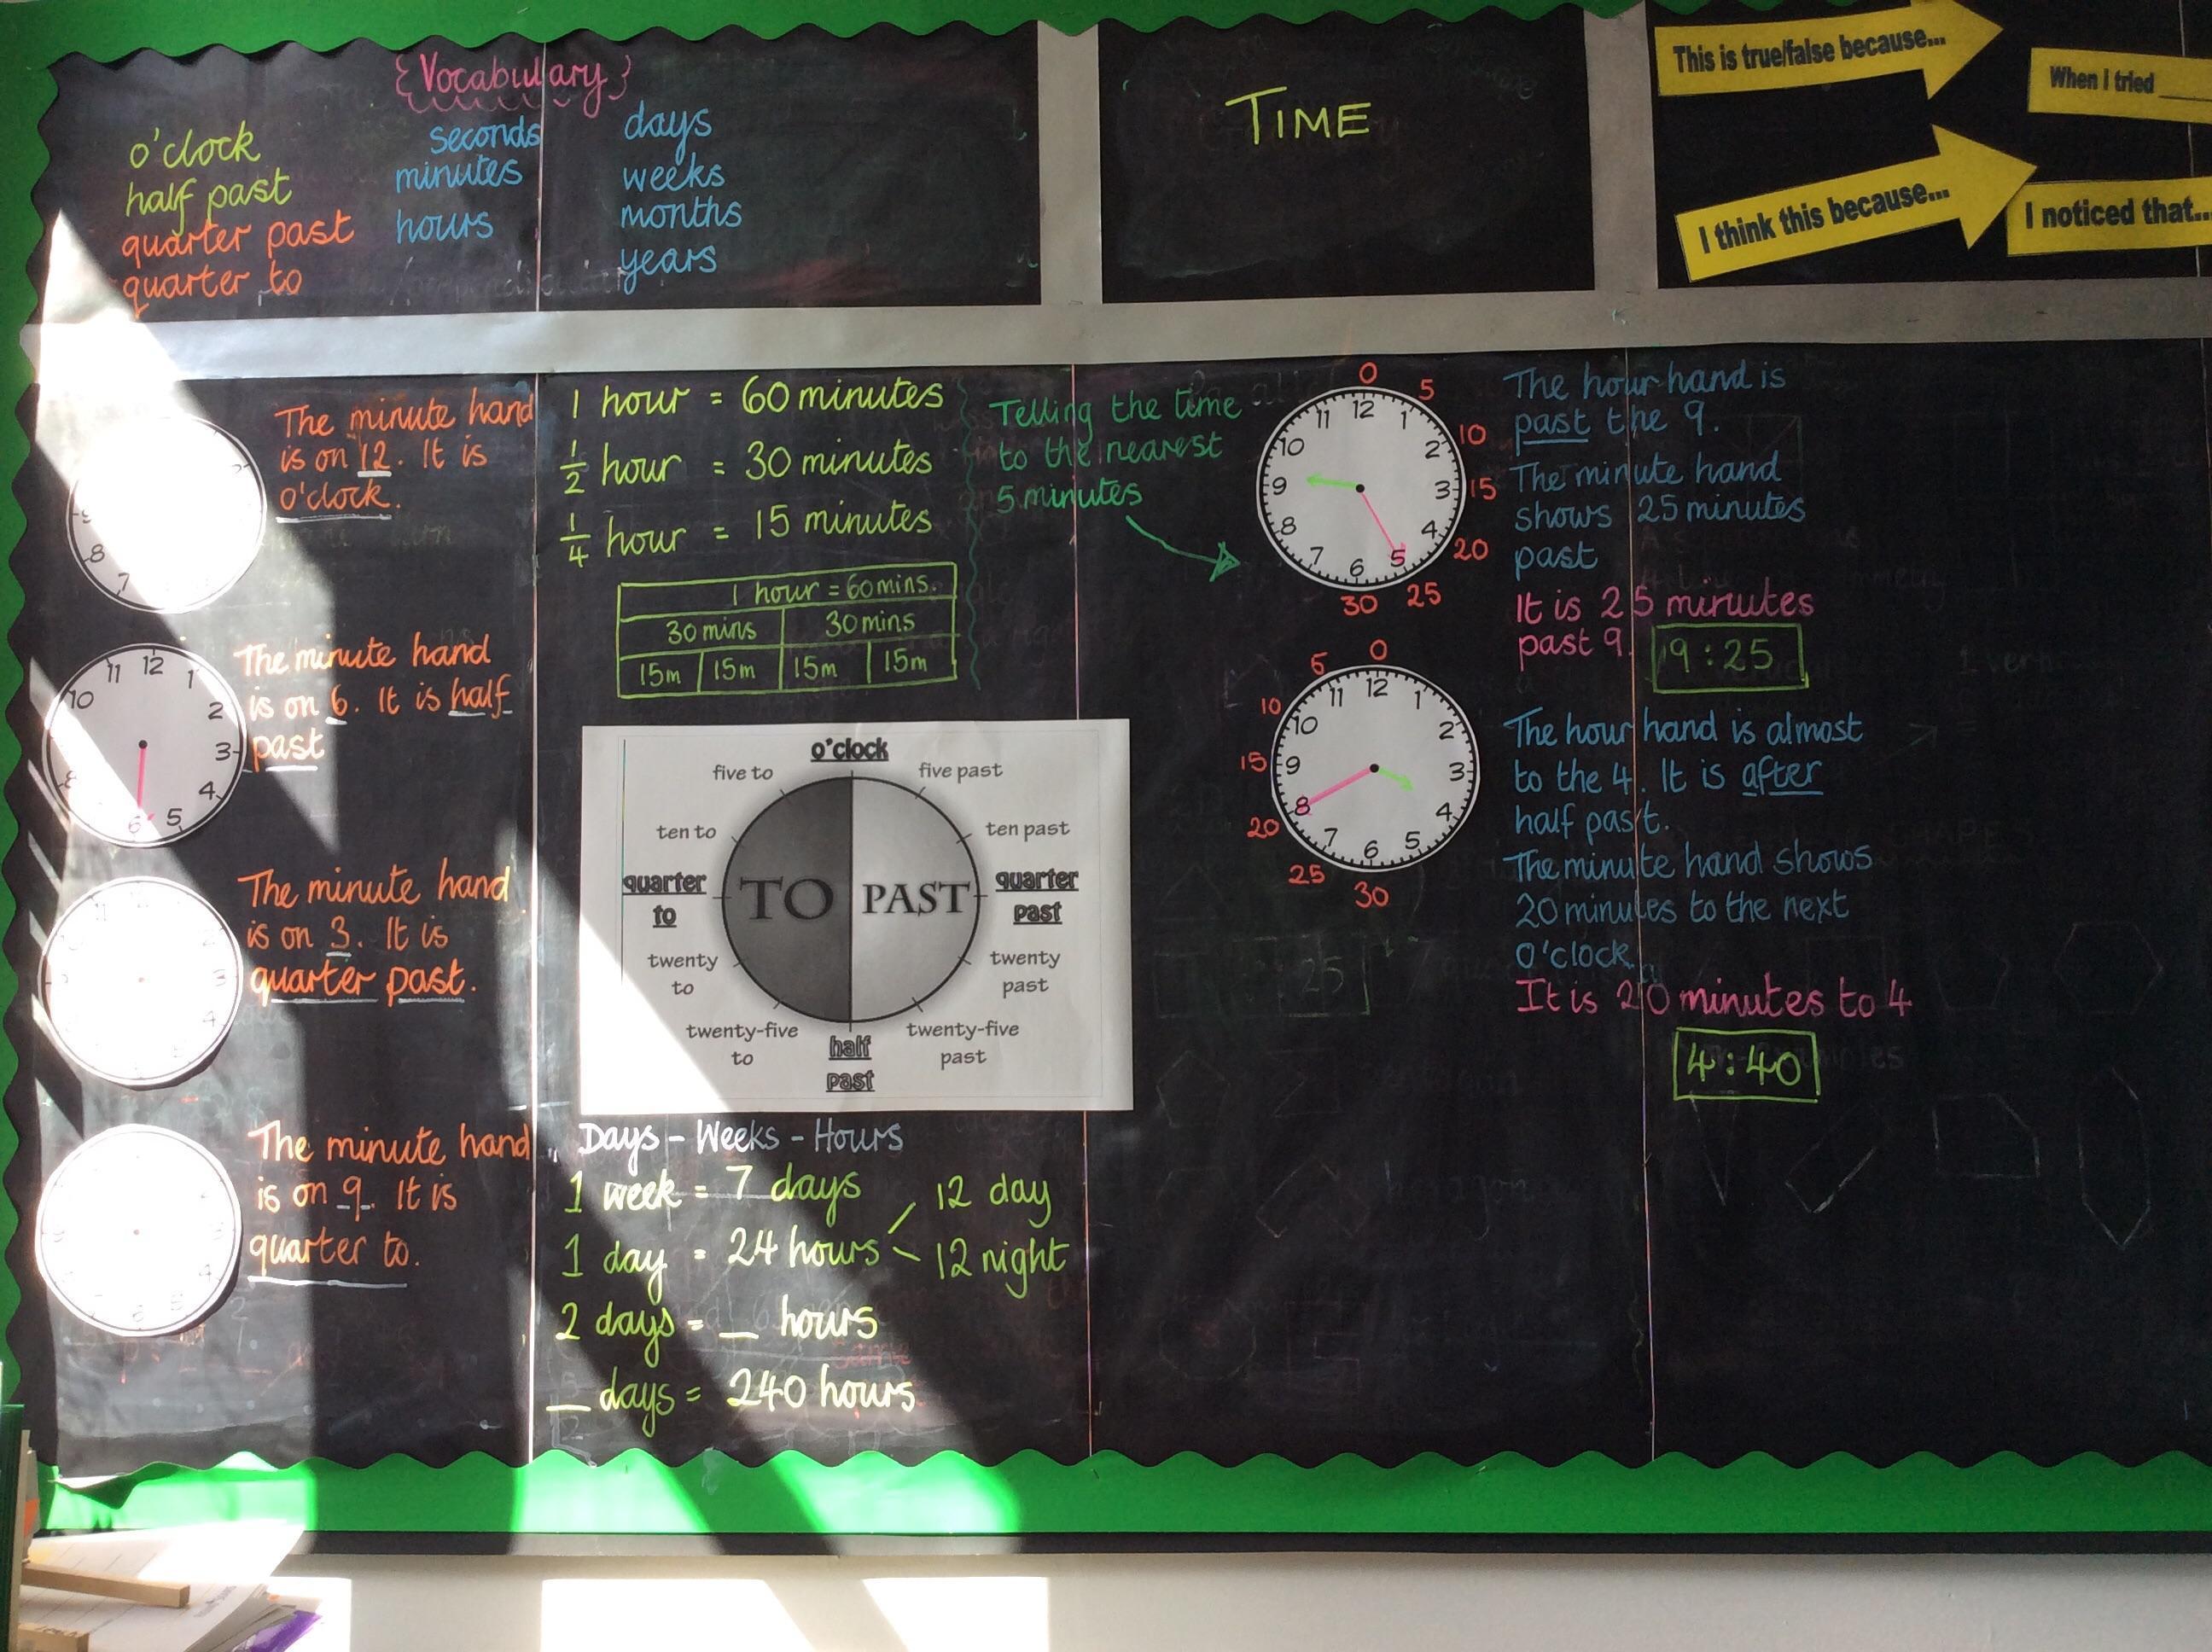 {Vocabulary}
o'clock
half past
quarter past
quarter to
seconds
minutes
hours
days
weeks
months
years
TIME
This is true/false because...
When I tried ___
I think this because...
I noticed that...
The minute hand
is on 12. It is
o'clock.
The minute hand
is on 6. It is half
past
The minute hand
is on 3. It is
quarter past.
The minute hand
is on 9. It is
quarter to.
1 hour = 60 minutes
1/2 hour = 30 minutes
1/4 hour = 15 minutes
1 hour = 60 mins.
30 mins 30 mins
15m 15m 15m 15m
o'clock
five to five past
ten to ten past
quarter to
TO PAST
quarter past
twenty to
twenty past
twenty-five to
twenty-five past
half past
Days - Weeks - Hours
1 week = 7 days
1 day = 24 hours
12 day
12 night
2 days = __ hours
__ days = 240 hours
Telling the time
to the nearest
5 minutes
0 5 10 15 20 25 30
12 1 2 3 4 5 6 7 8 9 10 11
The hour hand is
past the 9.
The minute hand
shows 25 minutes
past
It is 25 minutes
past 9.
9:25
0 5 10 15 20 25 30
12 1 2 3 4 5 6 7 8 9 10 11
The hour hand is almost
to the 4. It is after
half past.
The minute hand shows
20 minutes to the next
o'clock.
It is 20 minutes to 4
4:40